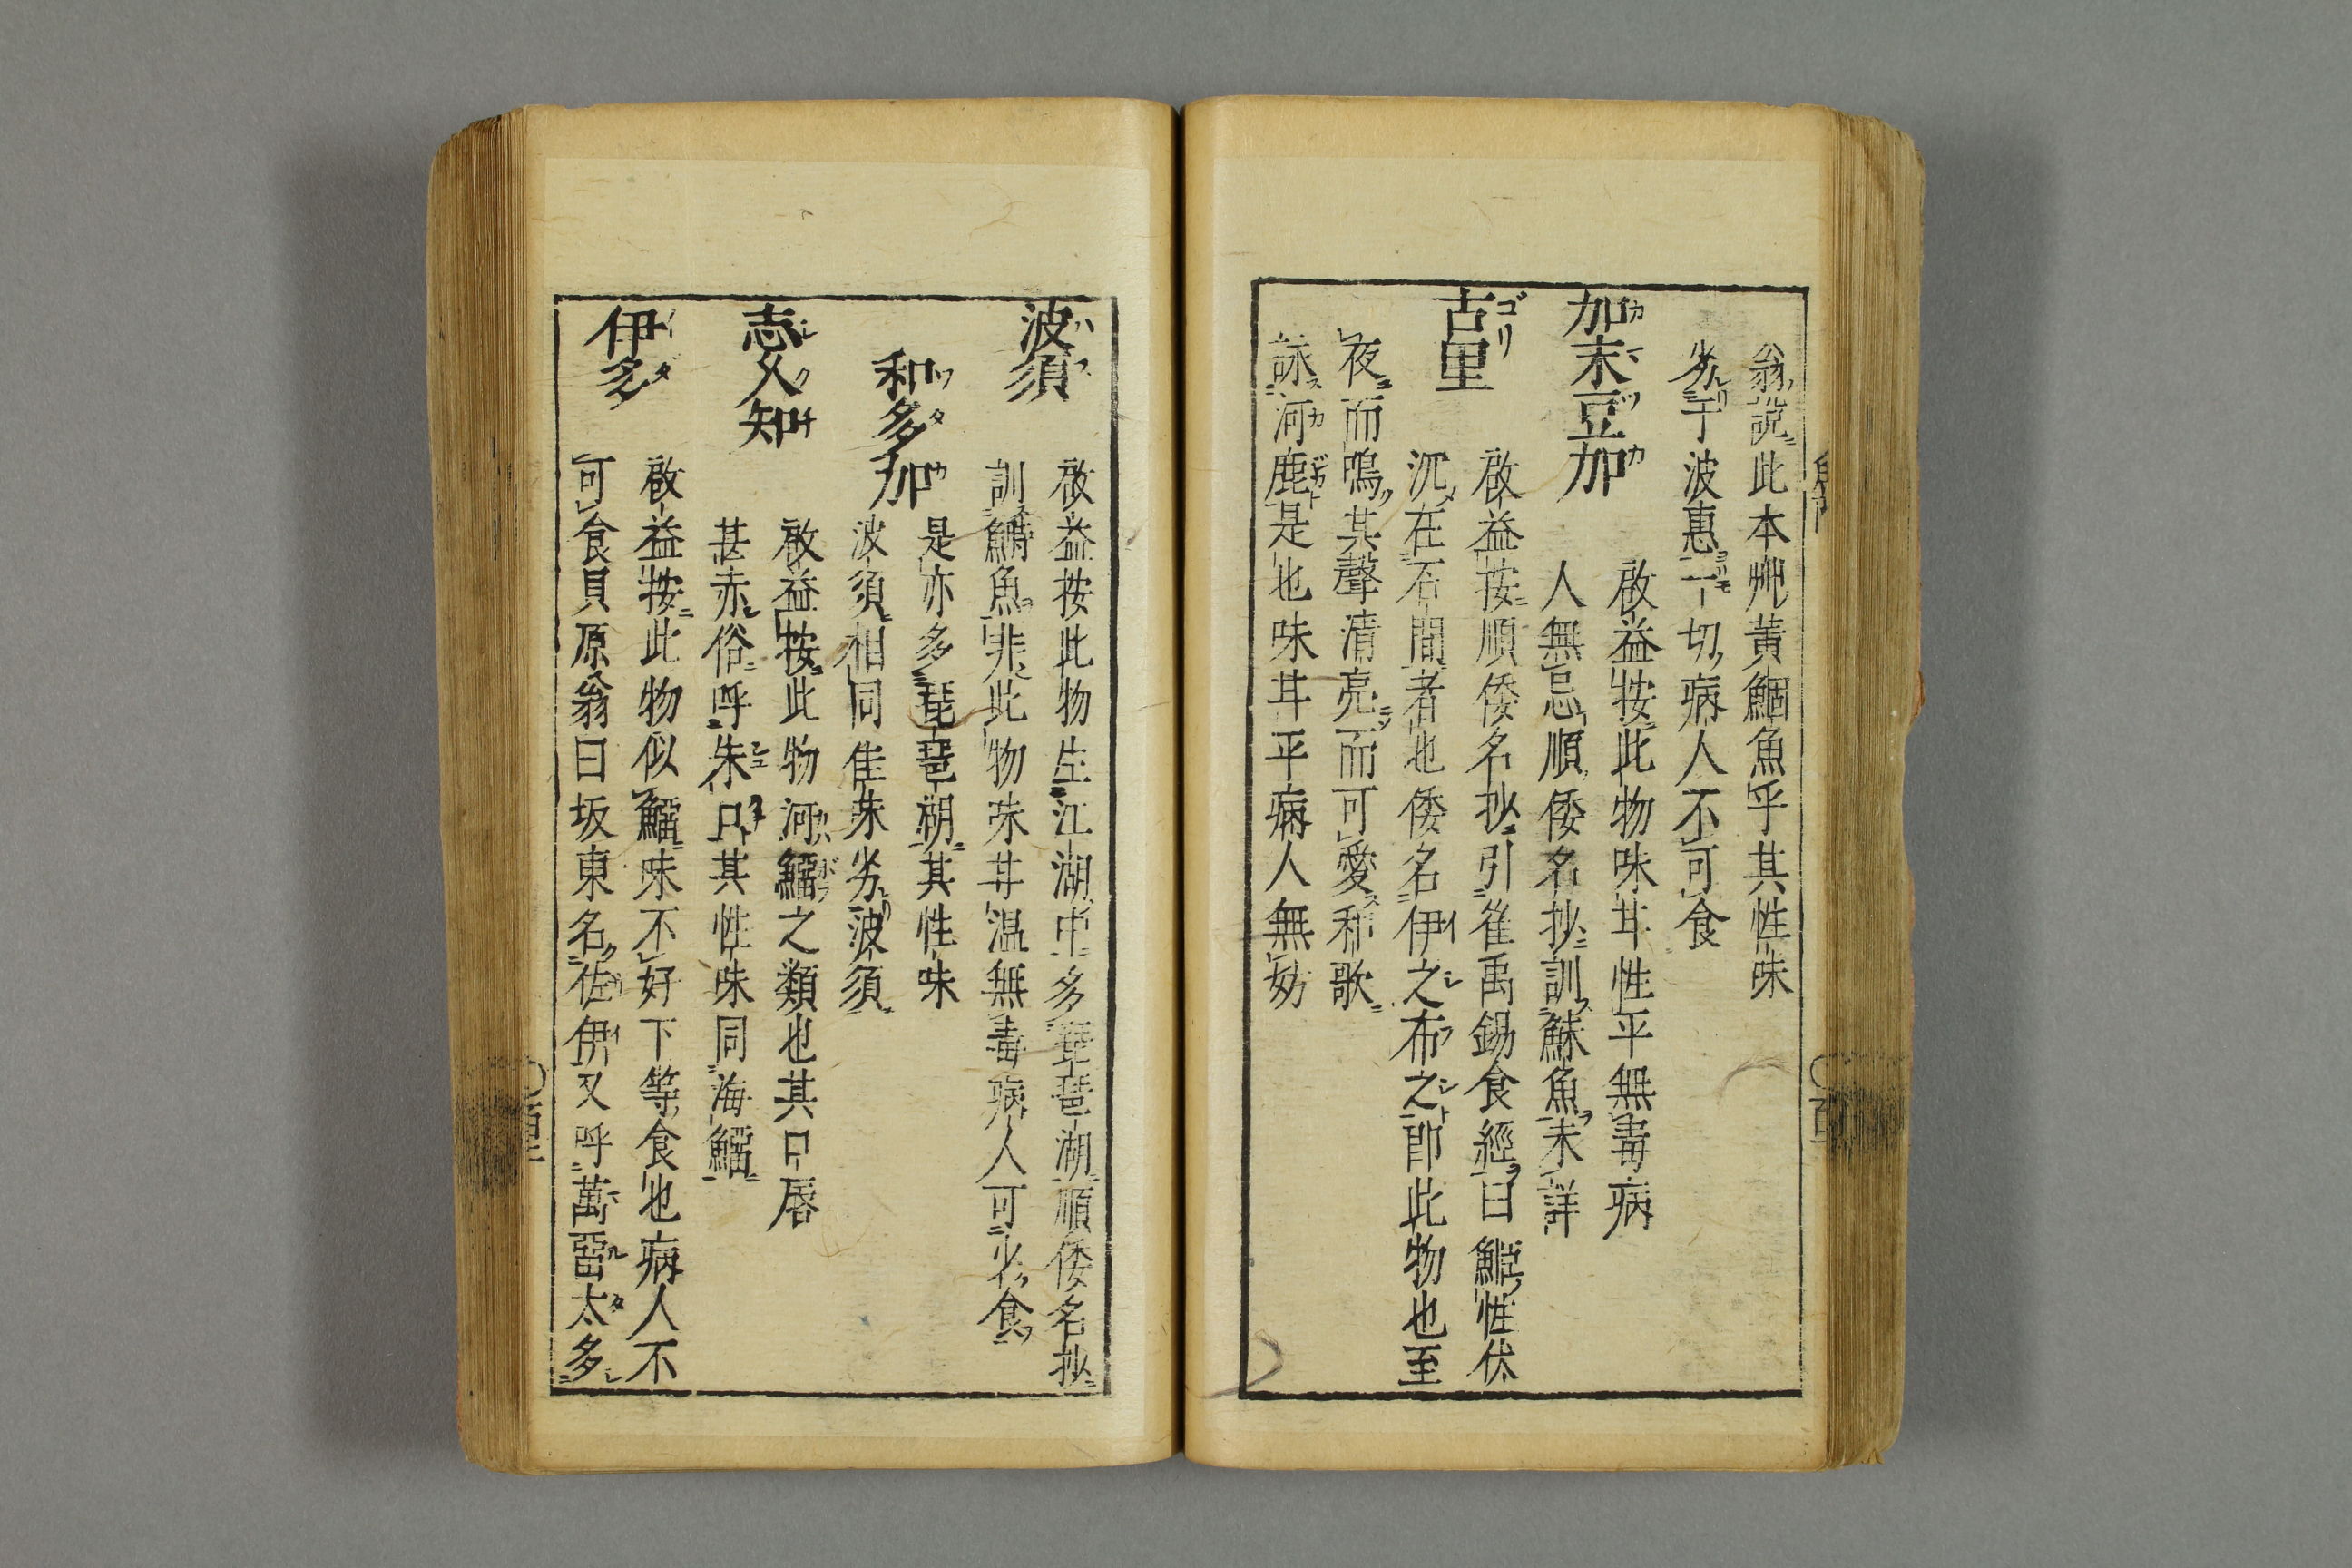 翁説此本州黄鯝魚乎其性味
劣于波惠一切病人不可食
加末豆加
啟益按此物味甘性平無毒病
人無忌順倭名抄訓鮇魚未詳
古里
啟益按順倭名抄引崔禹錫食經曰䱎性伏
沉在石間者也倭名伊之布之即此物也至
夜而鳴其聲清亮而可愛和歌
詠河鹿是也味甘平病人無妨
波須
啟益按此物生江湖中多琵琶湖順倭名抄
訓魚非此物味甘温無毒病人可少食
和多加
是亦多琵琶湖其性味
波須相同佳味劣波須
志久知
啟益按此物河鰡之類也其口唇
甚赤俗呼朱口其性味同海鰡
伊多
啟益按此物似鰡味不好下等食也病人不
可食貝原翁曰坂東名佐伊又呼萬畱太多